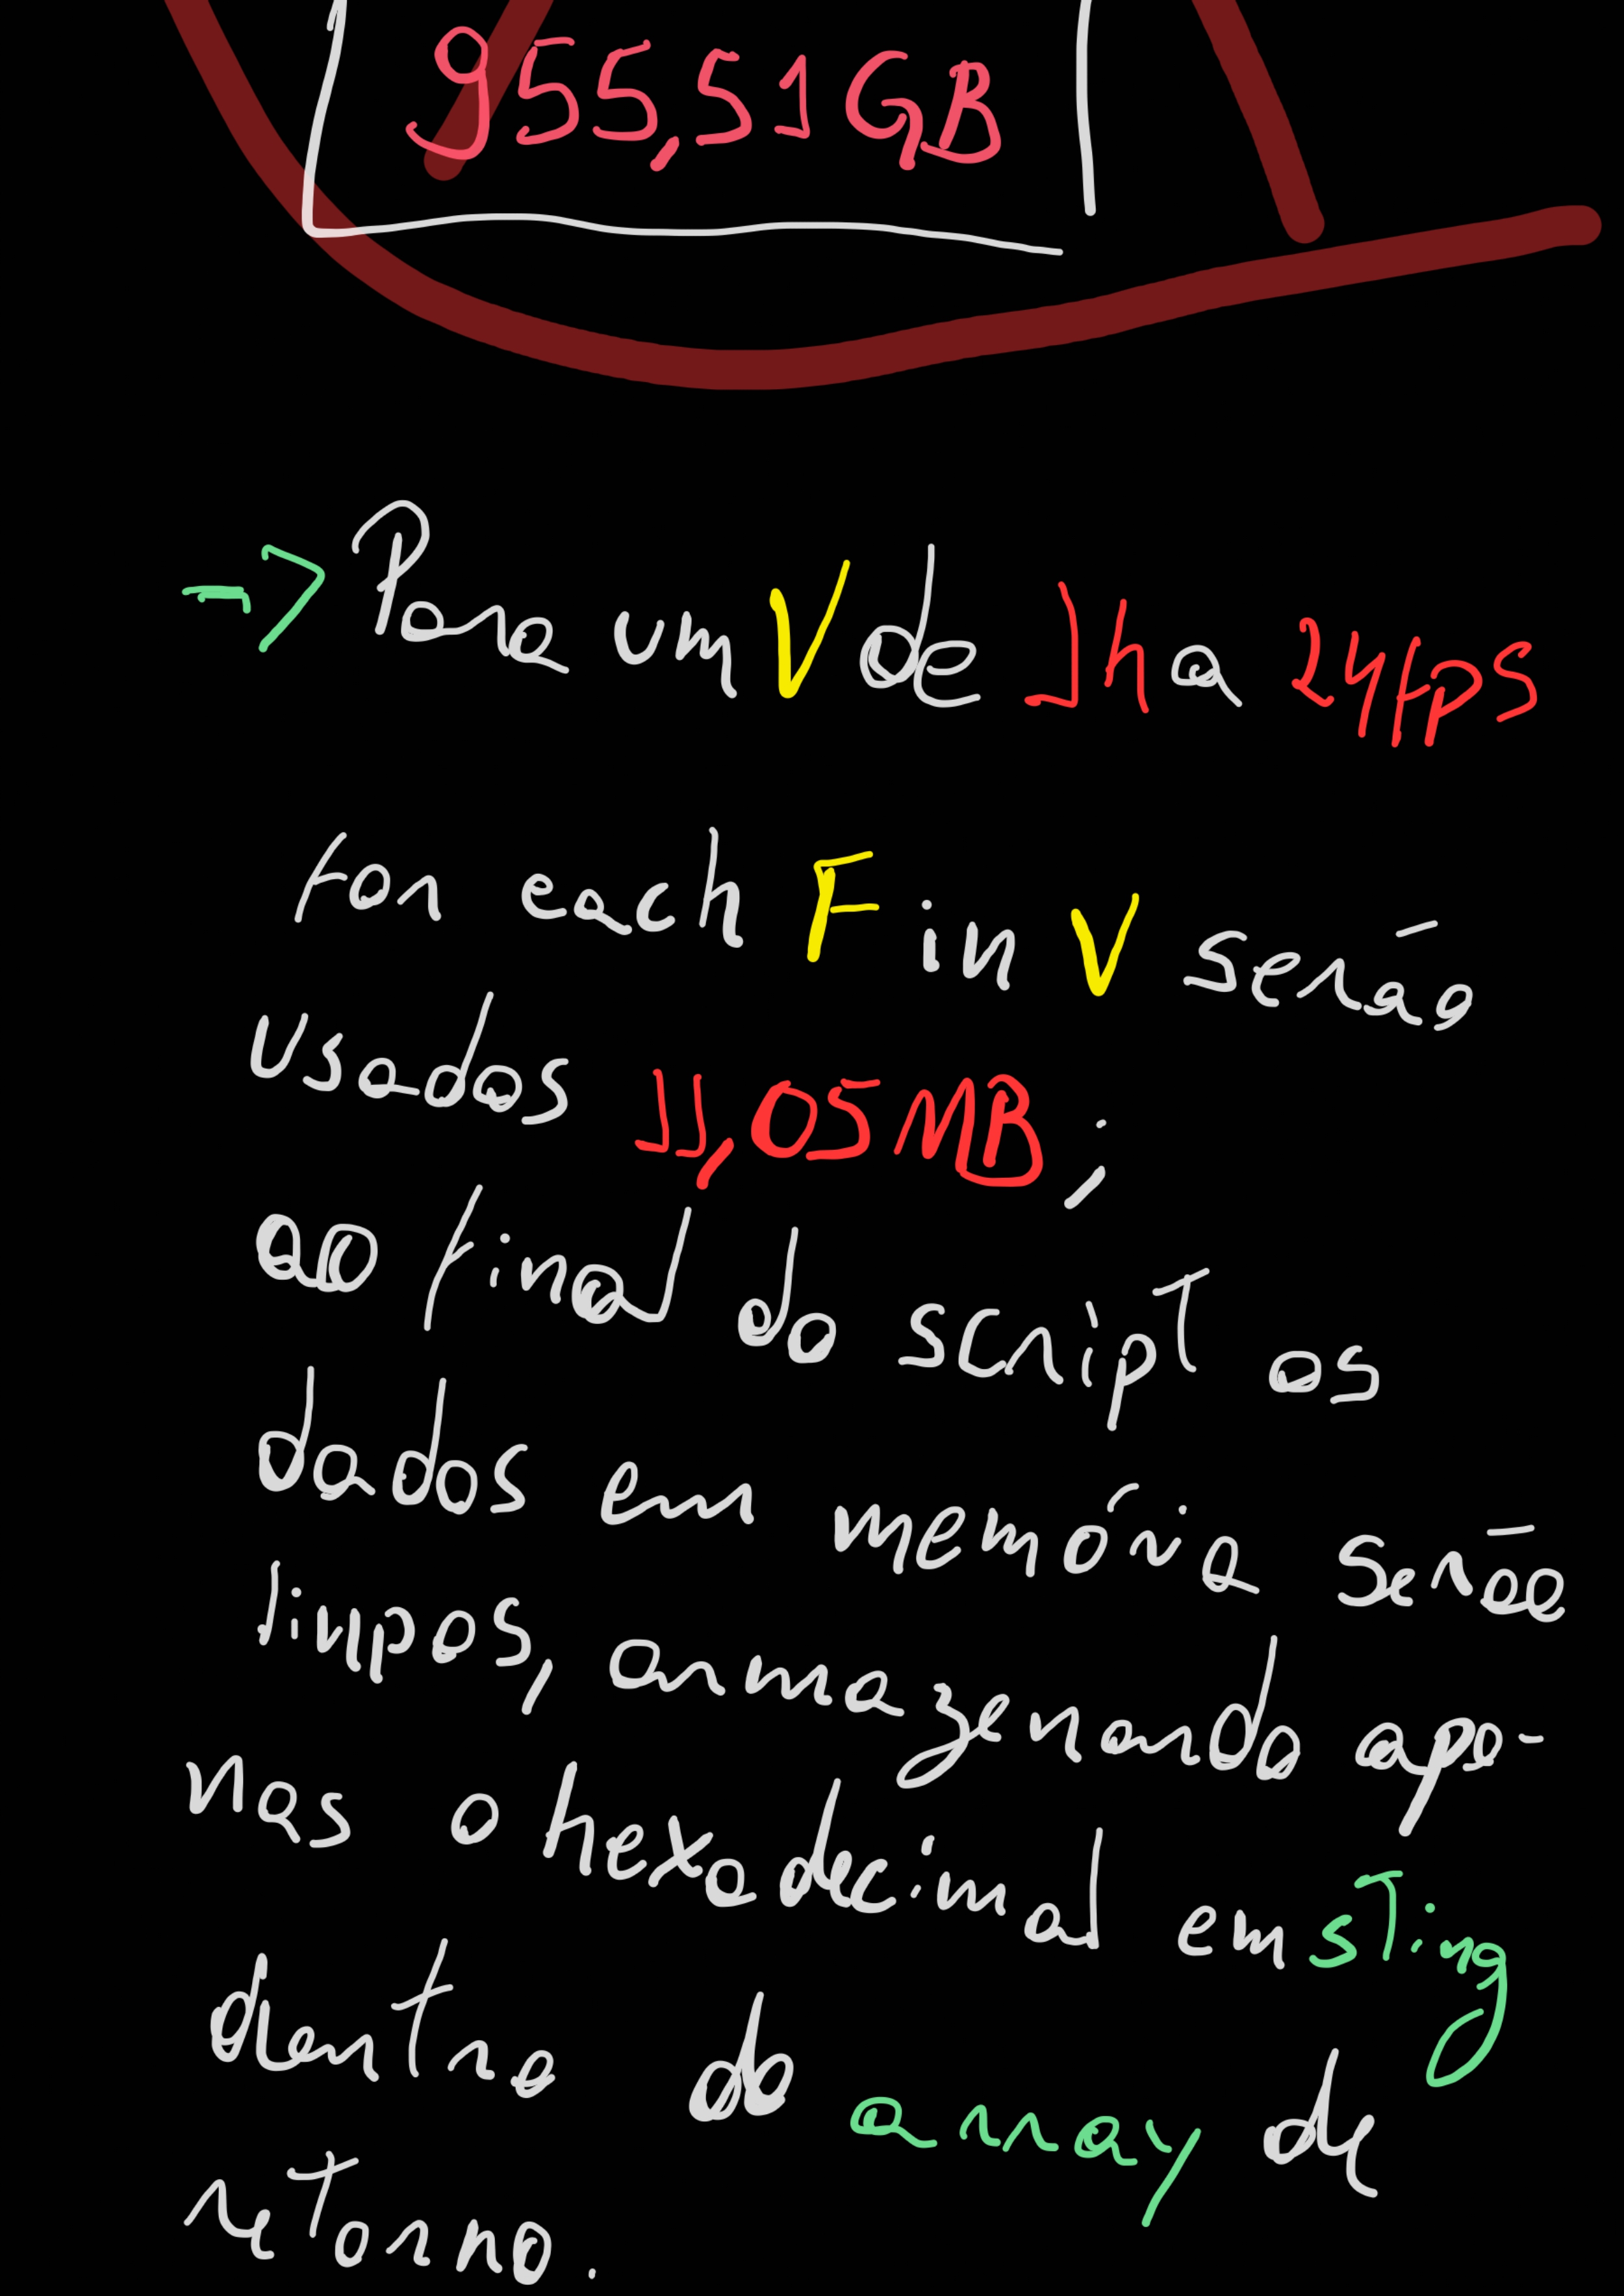 955,51GB
→ Para um V de 1h a 24fps
for each F in V serão
usados 11,05MB;
ao final do script os
dados em memória serão
limpos, armazenando ape-
nas o hexadecimal em sting
dentro do array de
retorno.